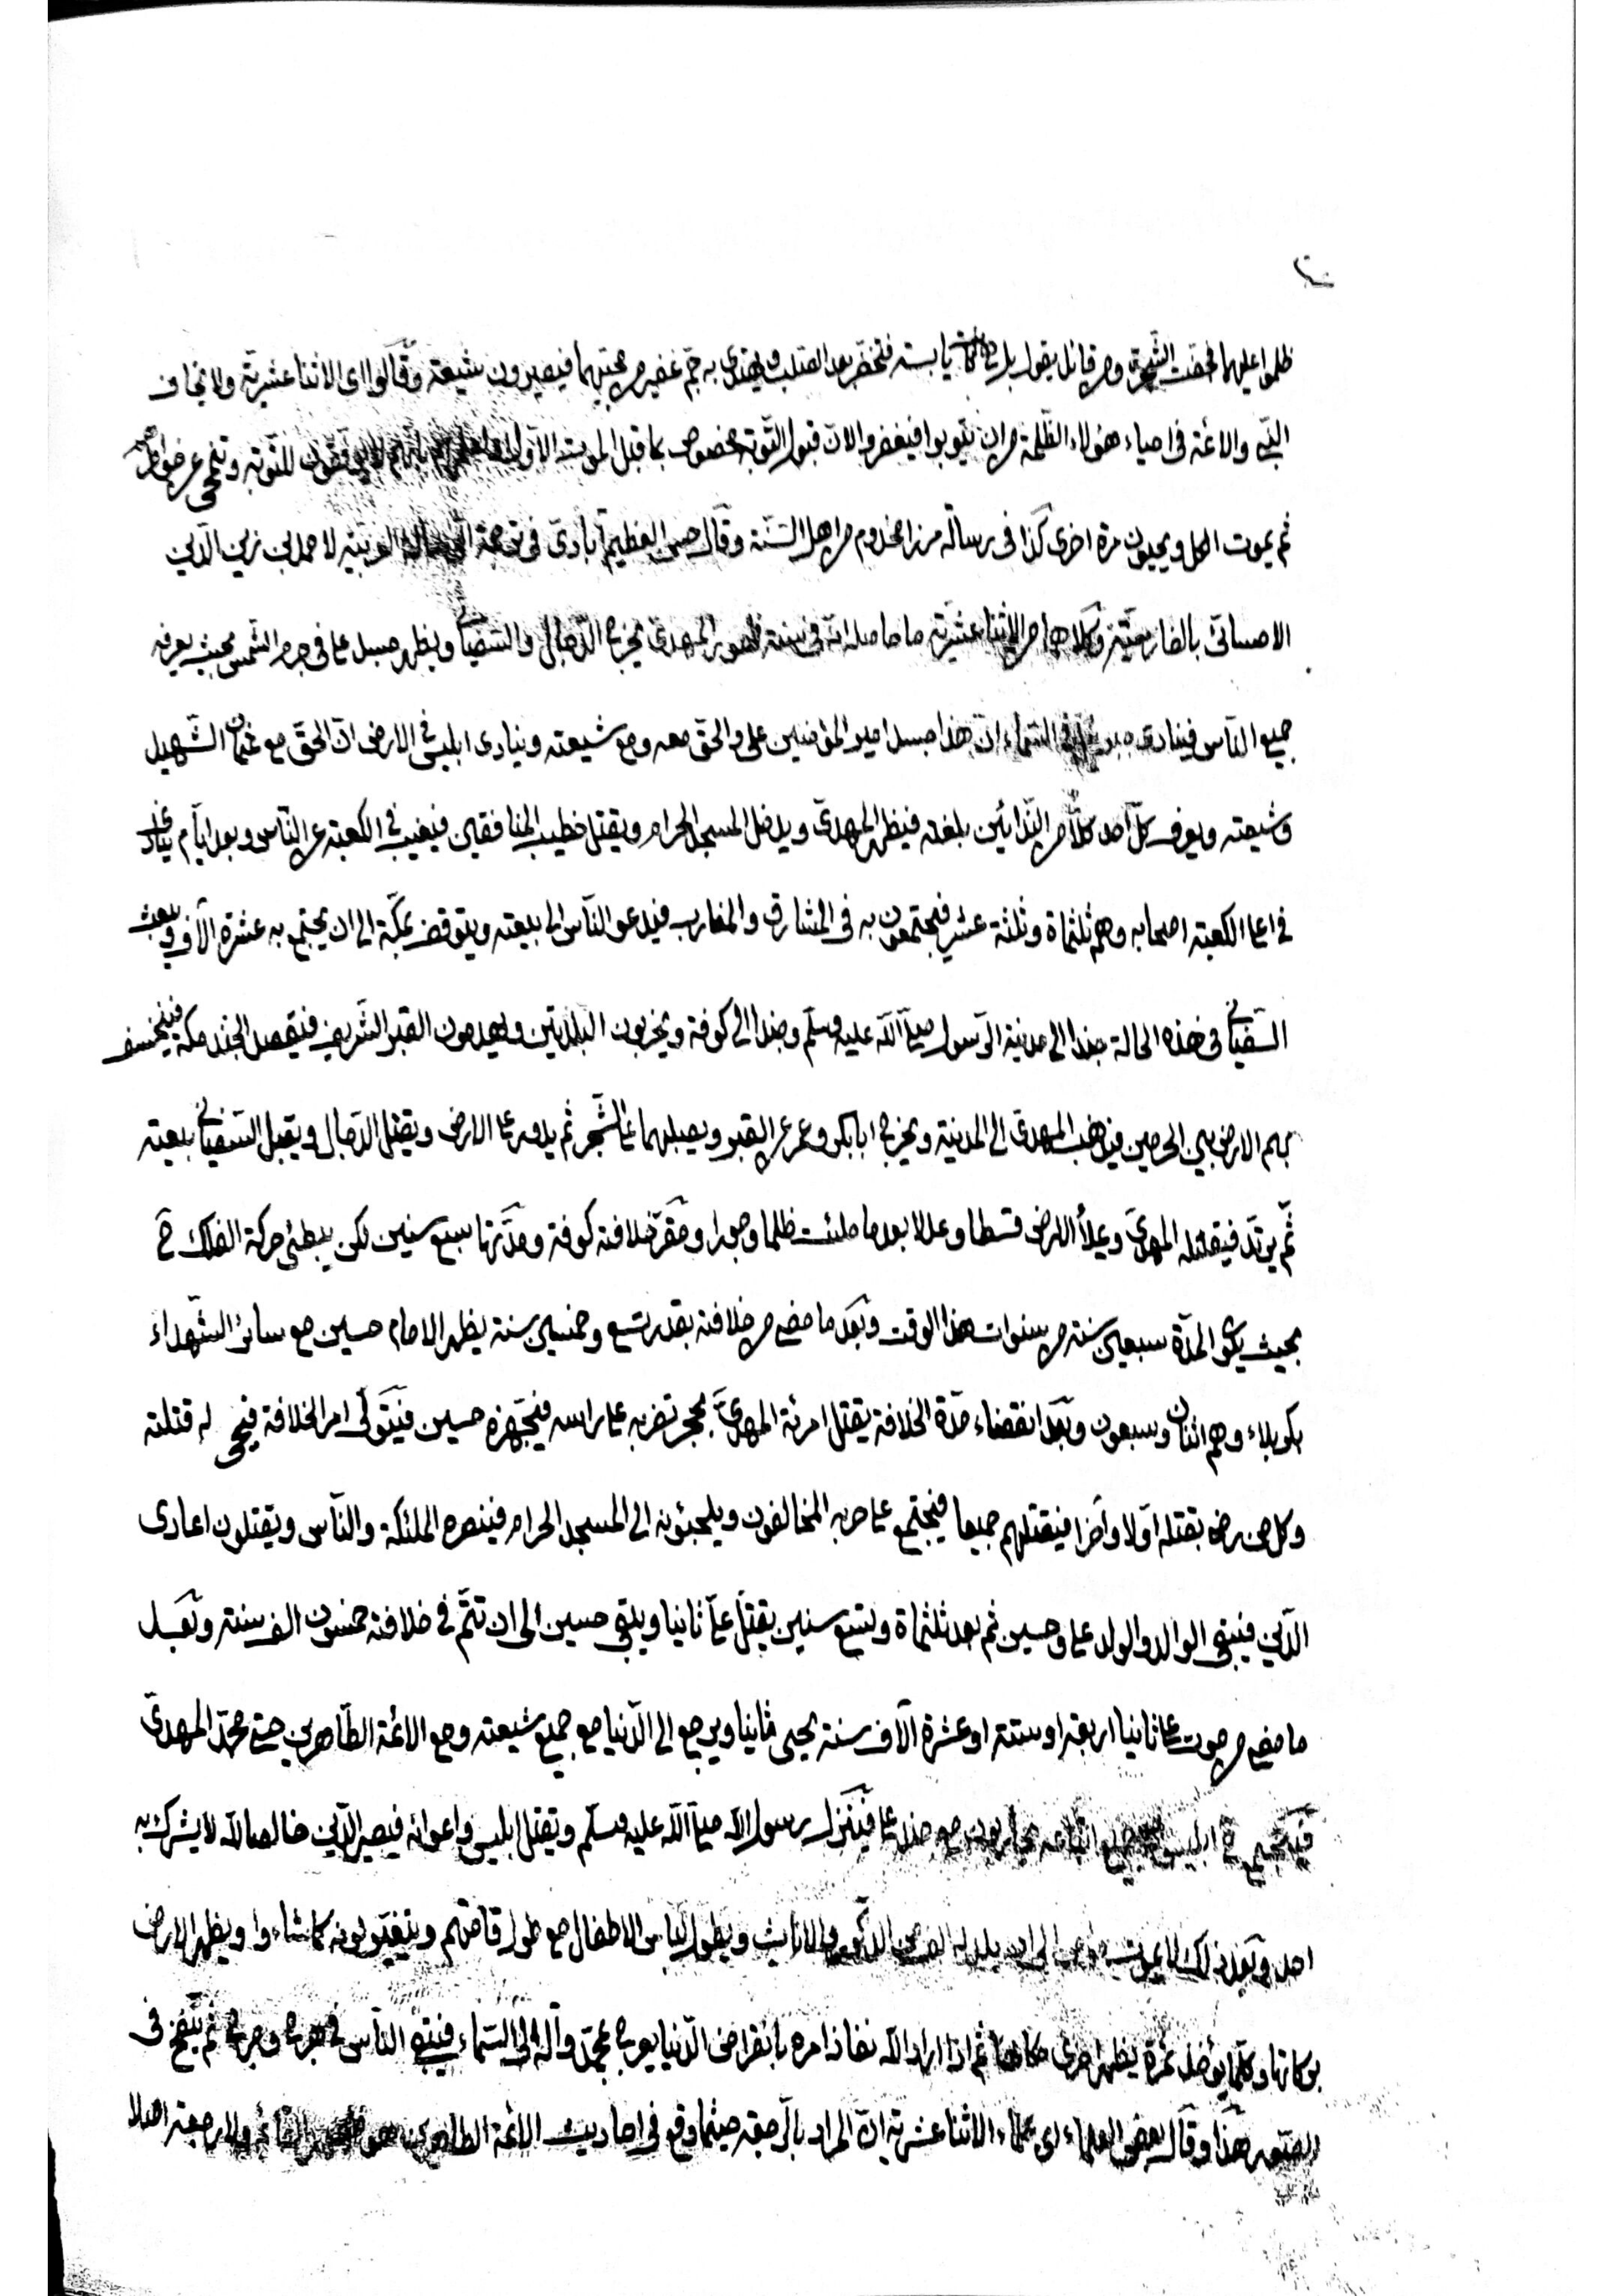 ظلموا عليهما فجفت الشجرة ومن قائل يقول بل كانت يابسة فتخضر بعد الصلب ويهتدى به جم غفير من محبيهما فيصيرون شيعته وقالوا اى الاثنا عشرية ولا يخاف
النبى والائمة فى احياء هؤلاء الظلمة من ان يتوبوا فيغفروا لان قبول التوبة مخصوص بما قبل الموت الاول للتوبة
ثم يموت الكل ويحيون مرة اخرى كذا فى رسالة مرزا مخدوم من اهل السنة وقال العظيم آبادى فى ترجمة لاحمد بن زين الدين
الاحسائى بالفارسية وكلاهما من الاثنا عشرية ما حاصله انه فى سنة ظهور المهدى يخرج الدجال والسفيانى ويظهر جسد على فى جرم الشمس بحيث يعرفه
جميع الناس فينادى فى السماء ان هذا جسد امير المؤمنين على والحق معه ومع شيعته وينادى ابليس فى الارض ان الحق مع عثمان الشهيد
وشيعته ويعرف كل احد كلا من الندائين بلغته فيظهر المهدى ويدخل المسجد الحرام ويقتل خطيب المنافقين فيغيب فى الكعبة عن الناس وبعد ايام ينادى
فى اعلى الكعبة اصحابه وهم ثلثماة وثلثة عشر فيجتمعون به فى المشارق والمغارب فيدعو الناس الى بيعته ويتوقف بمكة الى ان يجتمع به عشرة آلاف ويبعث
السفيانى فى هذه الحالة جندا الى مدينة الرسول صلى الله عليه وسلم وجندا الى كوفة ويخربون البلدتين ويهدمون القبر الشريف فيقصد الجند مكة فينخسف
بهم الارض بين الحرمين فيذهب المهدى الى المدينة ويخرج ابا بكر وعمر عن القبر ويصلبهما على الشجر ثم يدور على الارض ويقتل الدجال ويقبل السفيانى بيعته
ثم يرتد فيقتله المهدى ويملأ الارض قسطا وعدلا بعد ما ملئت ظلما وجورا ومقر خلافته كوفة ومدتها سبع سنين لكن يبطئ حركة الفلك ح
بحيث يكون المدة سبعين سنة من سنوات هذا الوقت وبعد ما مضى من خلافته بقدر تسع وخمسين سنة يظهر الامام حسين مع سائر الشهداء
بكربلاء وهم اثنان وسبعون وبعد انقضاء مدة الخلافة يقتل امرئة المهدى بحجر تضربه على راسه فيجهزه حسين فيتولى امر الخلافة فيحيى له قتلته
وكل من رضى بقتله اولا وآخرا فيقتلهم جميعا فيجتمع على حربه المخالفون ويلجئونه الى المسجد الحرام فينصره الملئكة والناس ويقتلون اعادى
الدين فيبقى الوالد والولد على وحسين ثم بعد ثلثماة وتسع سنين يقتل على ثانيا ويبقى حسين الى ان تتم فى خلافته خمسون الف سنة وبعد
ما مضى من موت على ثانيا اربعة او ستة او عشرة آلاف سنة يحيى ثانيا ويرجع الى الدنيا مع جميع شيعته ومع الائمة الطاهرين حتى محمد المهدى
فيجتمع ح ابليس جميع اتباعه يحاربون مع على فينزل رسول الله صلى الله عليه وسلم ويقتل ابليس واعوانه فيصير الدين خالصا لله لا يشرك به
احد وبعد ذلك لا يموت الى ان يلد له الف من الذكور والاناث ويطول لباس الاطفال مع طول قامتهم ويتغير لونه كما شاءوا ويظهر الارض
بركاتها وكلما يؤخذ ثمرة يظهر اخرى مكانها ثم اذا اراد الله نفاذ امره بانقراض الدنيا يعرج محمد وآله الى السماء فيبقى الناس فى هرج ومرج ثم ينفخ فى
الصور هذا وقال بعض العلماء اى علماء الاثنا عشرية ان المراد بالرجعة حيثما وقع فى احاديث الائمة الطاهرين هو ولا رجعة اصلا